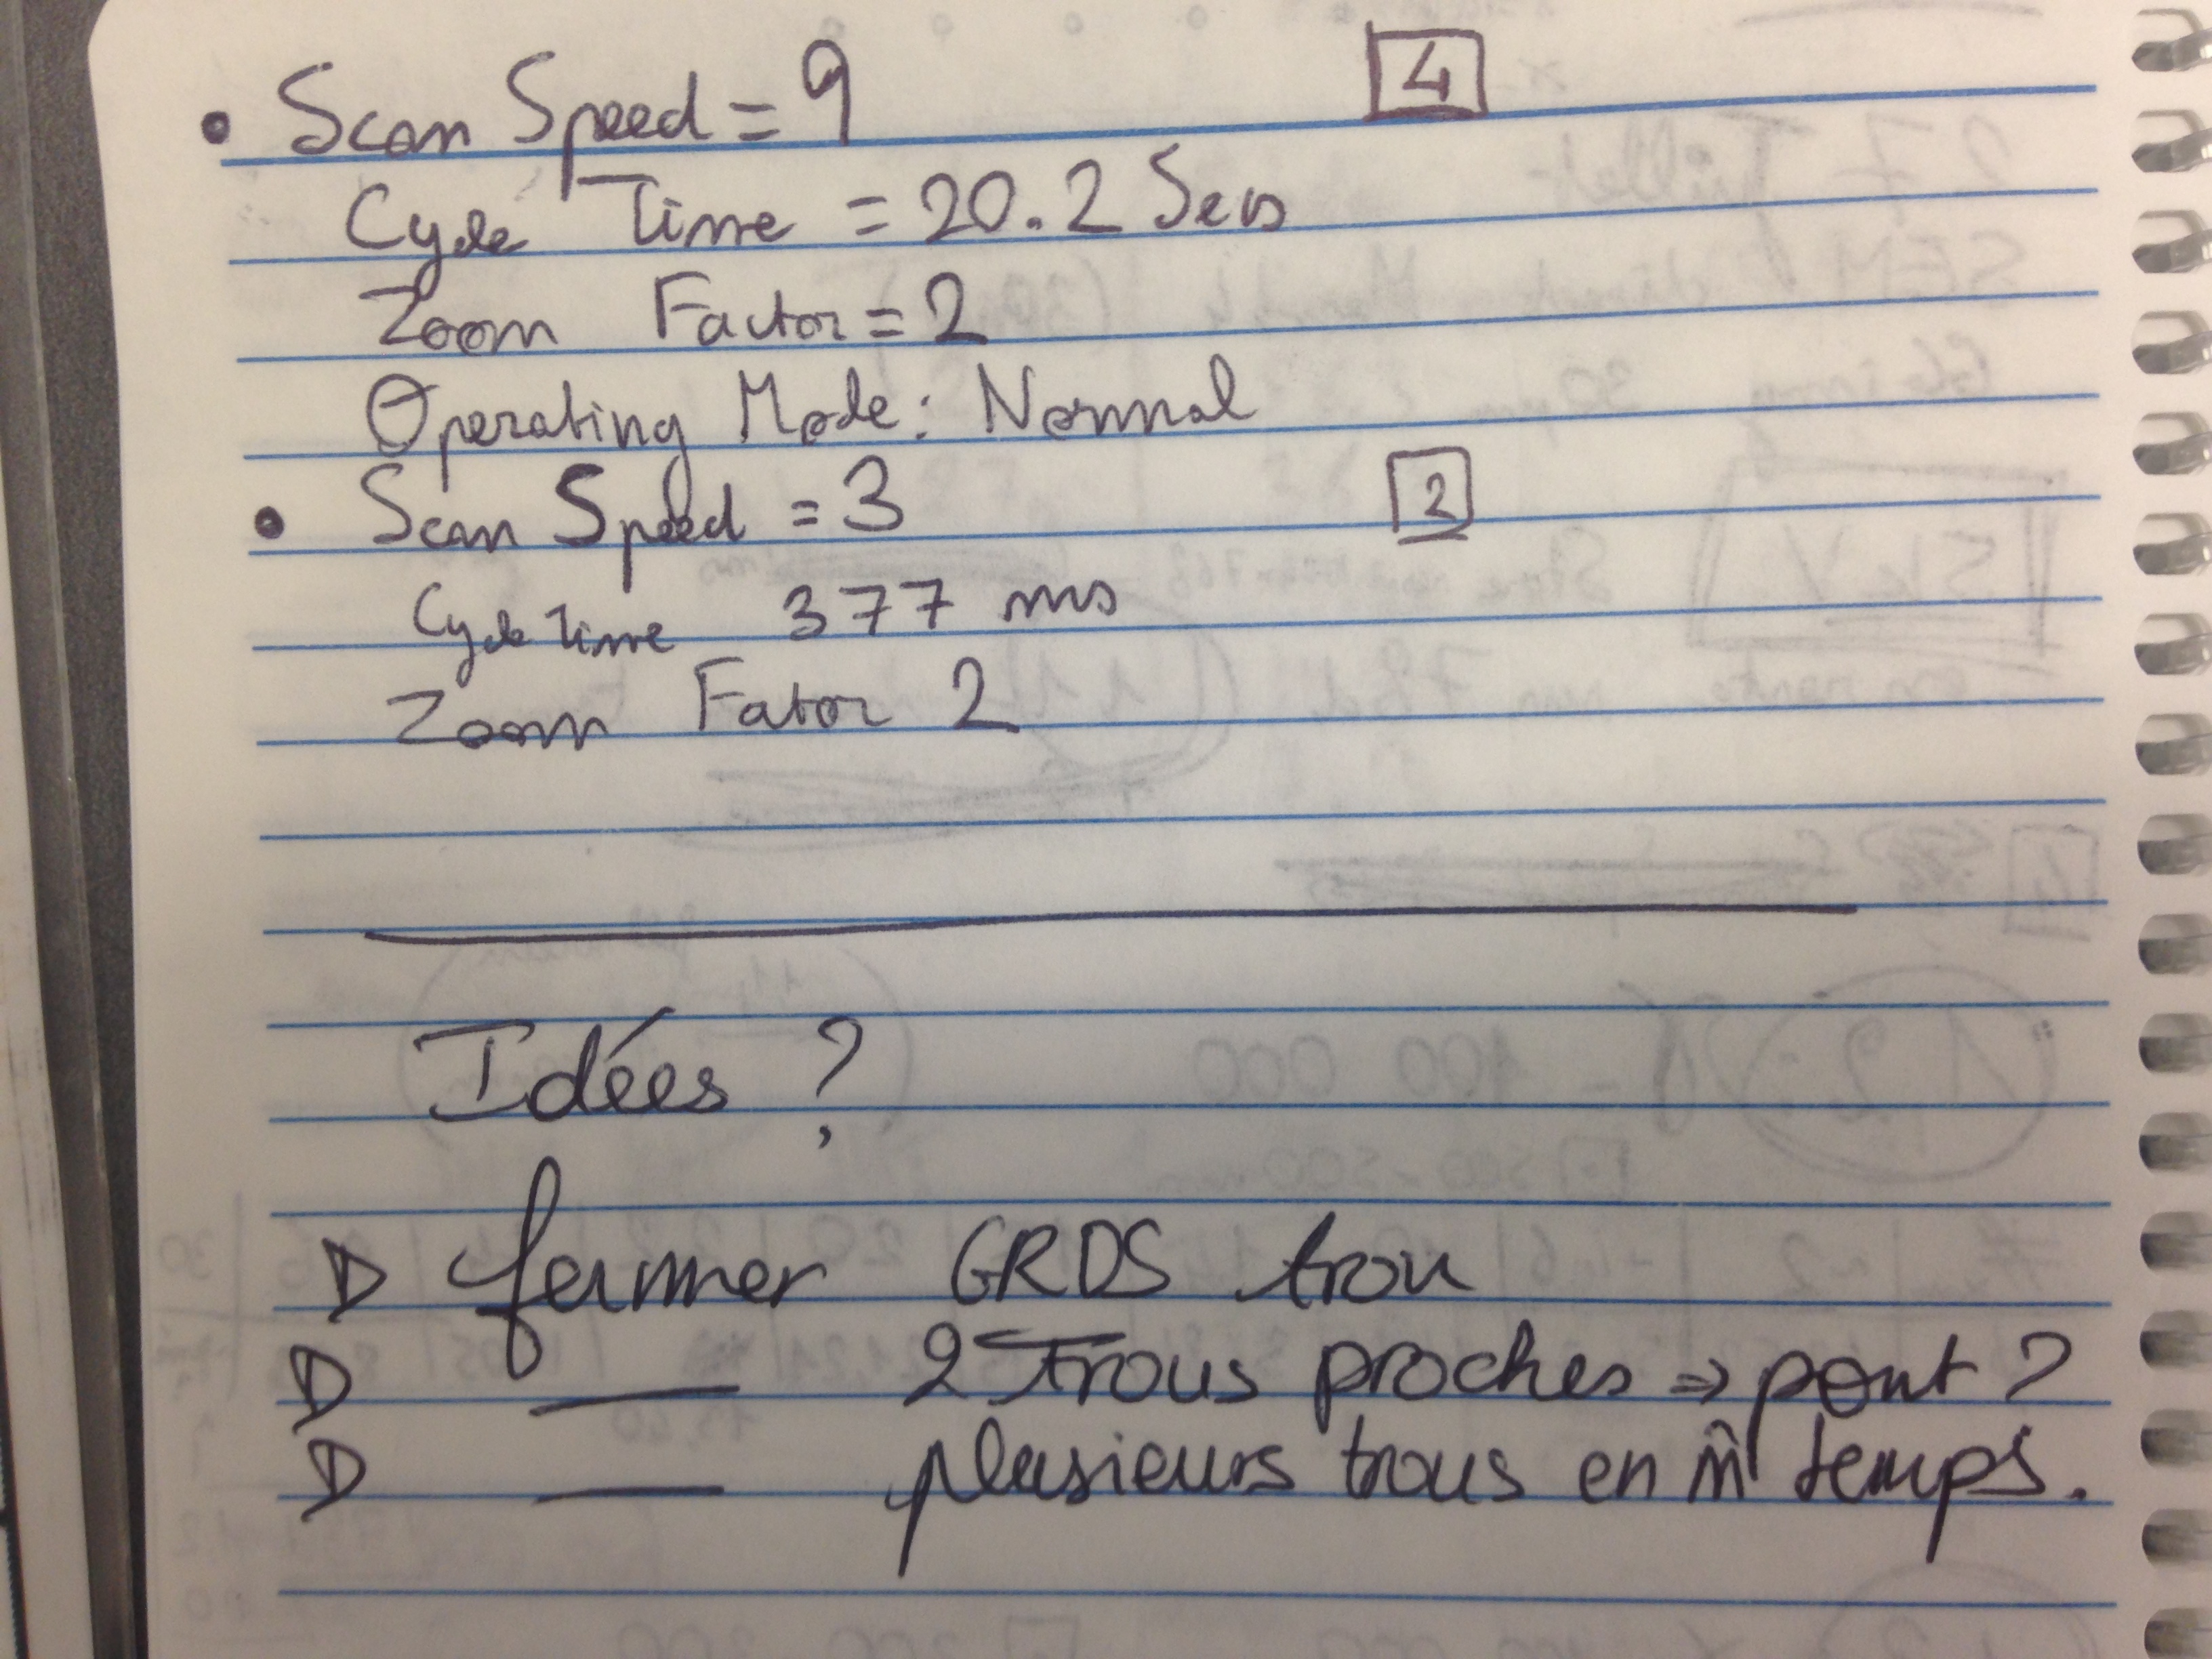 • Scan Speed = 9 [4]
Cycle Time = 20.2 Secs
Zoom Factor = 2
Operating Mode: Normal
• Scan Speed = 3 [2]
Cycle Time 377 ms
Zoom Fator 2
Idées ?
▷ fermer GRDS trou
▷ — 2 Trous proches ⇒ pont ?
▷ — plusieurs trous en m̂ temps.